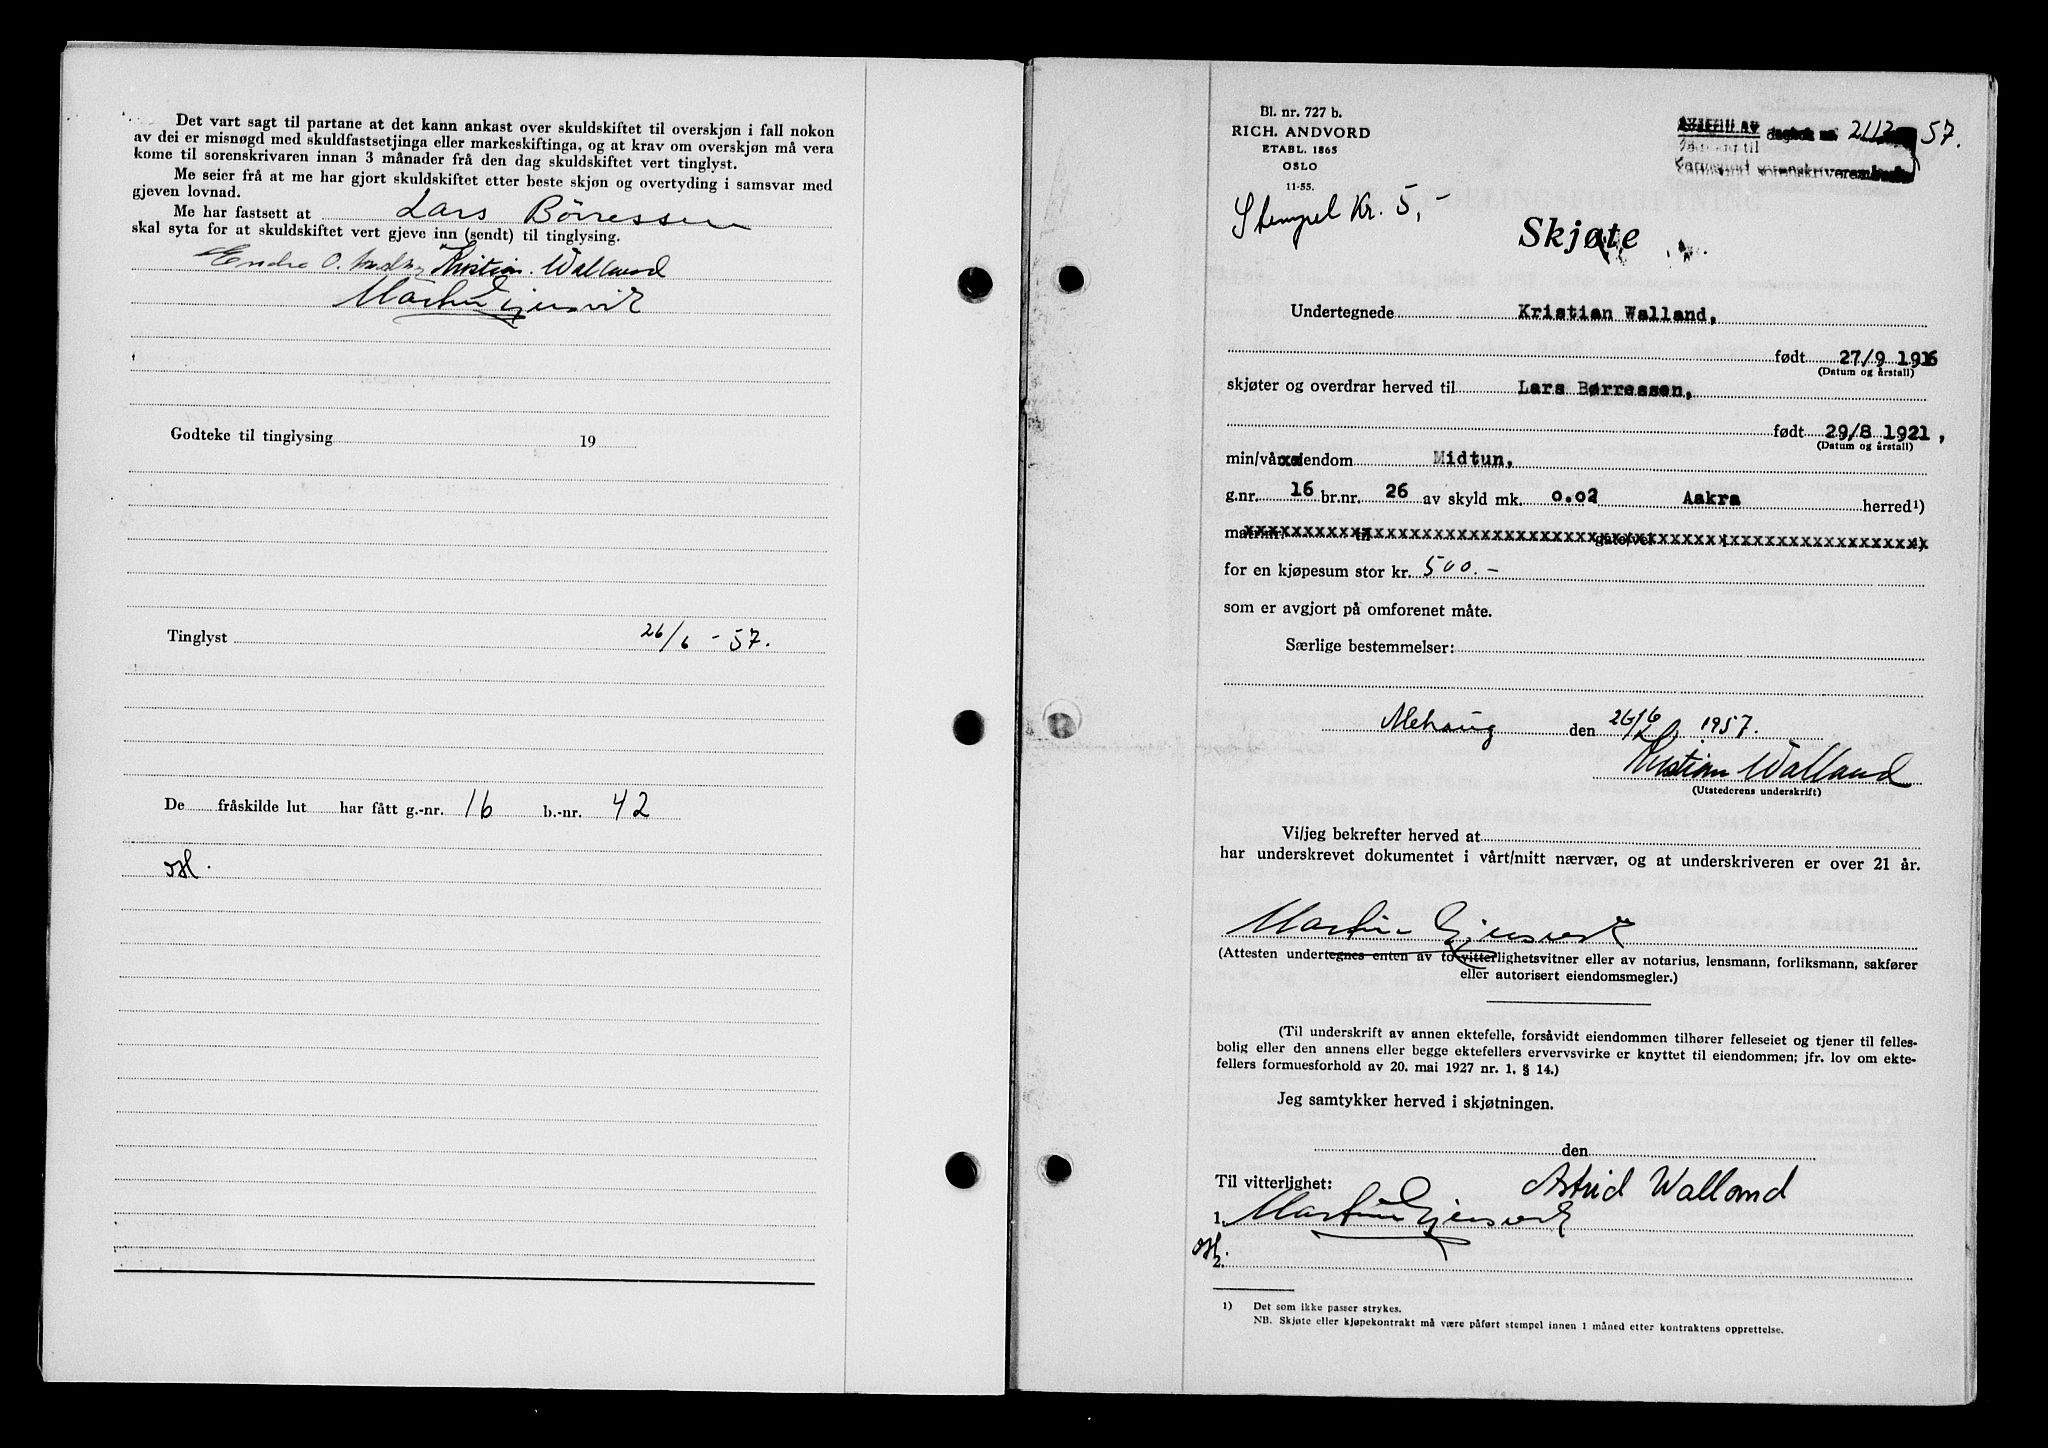 Det vart sagt til partane at det kann ankast over skuldskiftet til overskjøn i fall nokon
av dei er misnøgd med skuldfastsetjinga eller markeskiftinga, og at krav om overskjøn må vera
kome til sorenskrivaren innan 3 månader frå den dag skuldskiftet vert tinglyst.
Me seier frå at me har gjort skuldskiftet etter beste skjøn og overtyding i samsvar med
gjeven lovnad.
Me har fastsett at Lars Børressen
skal syta for at skuldskiftet vert gjeve inn (sendt) til tinglysing.
Endre O. Kristian Walland
Martin Gjensvik
Godteke til tinglysing 19
Tinglyst 26/6 - 57.
De fråskilde lut har fått g.-nr. 16 b.-nr. 42
Bl. nr. 727 b.
RICH. ANDVORD
ETABL. 1865
OSLO
11-55.
dagbok nr. 2112 57.
Karmsund sorenskriverembede
Stempel Kr. 5,-
Skjøte
Undertegnede Kristian Walland,
født 27/9 1916
(Datum og årstall)
skjøter og overdrar herved til Lars Børressen,
født 29/8 1921,
(Datum og årstall)
min/våre eiendom Midtun,
g.nr. 16 br.nr. 26 av skyld mk. 0.02 Aakra herred 1)
matr.nr. til gate/vei i 1)
for en kjøpesum stor kr. 500.-
som er avgjort på omforenet måte.
Særlige bestemmelser:
Mehaug den 26/6 1957.
Kristian Walland
(Utstederens underskrift)
Vi/jeg bekrefter herved at
har underskrevet dokumentet i vårt/mitt nærvær, og at underskriveren er over 21 år.
Martin Gjensvik
(Attesten undertegnes enten av to vitterlighetsvitner eller av notarius, lensmann, forliksmann, sakfører
eller autorisert eiendomsmegler.)
(Til underskrift av annen ektefelle, forsåvidt eiendommen tilhører felleseiet og tjener til felles-
bolig eller den annens eller begge ektefellers ervervsvirke er knyttet til eiendommen; jfr. lov om ekte-
fellers formuesforhold av 20. mai 1927 nr. 1, § 14.)
Jeg samtykker herved i skjøtningen.
den
Til vitterlighet: Astrid Walland
1. Martin Gjensvik
2.
1) Det som ikke passer strykes.
NB. Skjøte eller kjøpekontrakt må være påført stempel innen 1 måned etter kontraktens opprettelse.